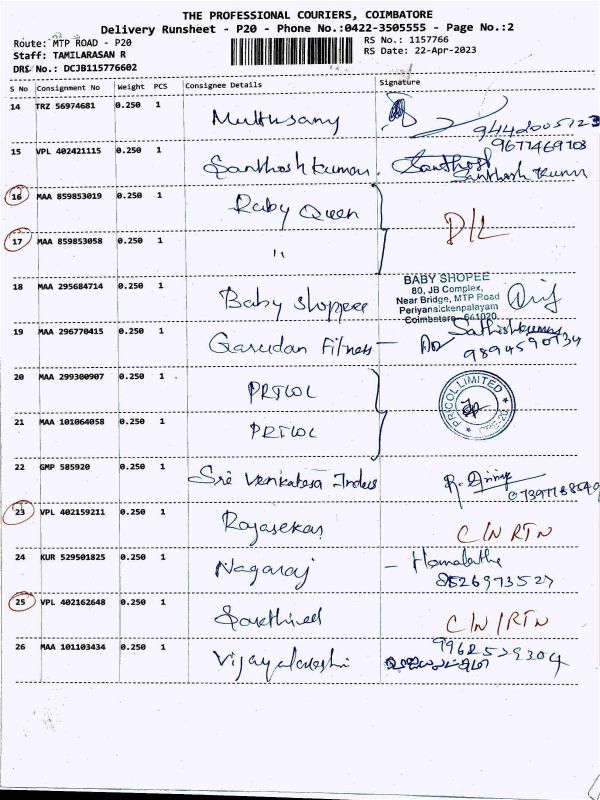 THE PROFESSIONAL COURIERS, COIMBATORE
Delivery Runsheet - P20 - Phone No.:0422-3505555 - Page No.:2
Route: MTP ROAD - P20
RS No.: 1157766
Staff: TAMILARASAN R
RS Date: 22-Apr-2023
DRS No.: DCJB115776602
S No Consignment No Weight PCS Consignee Details Signature
14 TRZ 56974681 0.250 1 Muthusamy
9442005123
15 VPL 402421115 0.250 1 Santhosh kumar. Santhosh
9677469703
Santhosh Kumar
16 MAA 859853019 0.250 1 Baby Queen
D/L
17 MAA 859853058 0.250 1 "
18 MAA 295684714 0.250 1 Baby shoppee
BABY SHOPEE
80, JB Complex,
Near Bridge, MTP Road
Periyanaickenpalayam
Coimbatore - 641020
19 MAA 296770415 0.250 1 Garudan Fitness - Sathishkumar
9894590734
20 MAA 299300907 0.250 1 PRICOL
PRICOL LIMITED
21 MAA 101064058 0.250 1 PRICOL
22 GMP 585920 0.250 1 Sri Venkatesa Indus
23 VPL 402159211 0.250 1 Rajasekar C/N RTN
24 KUR 529501825 0.250 1 Nagaraj - Hemalatha
8526973527
25 VPL 402162648 0.250 1 Sakthivel C/N/RTN
26 MAA 101103434 0.250 1 Vijayalakshmi
9962529304